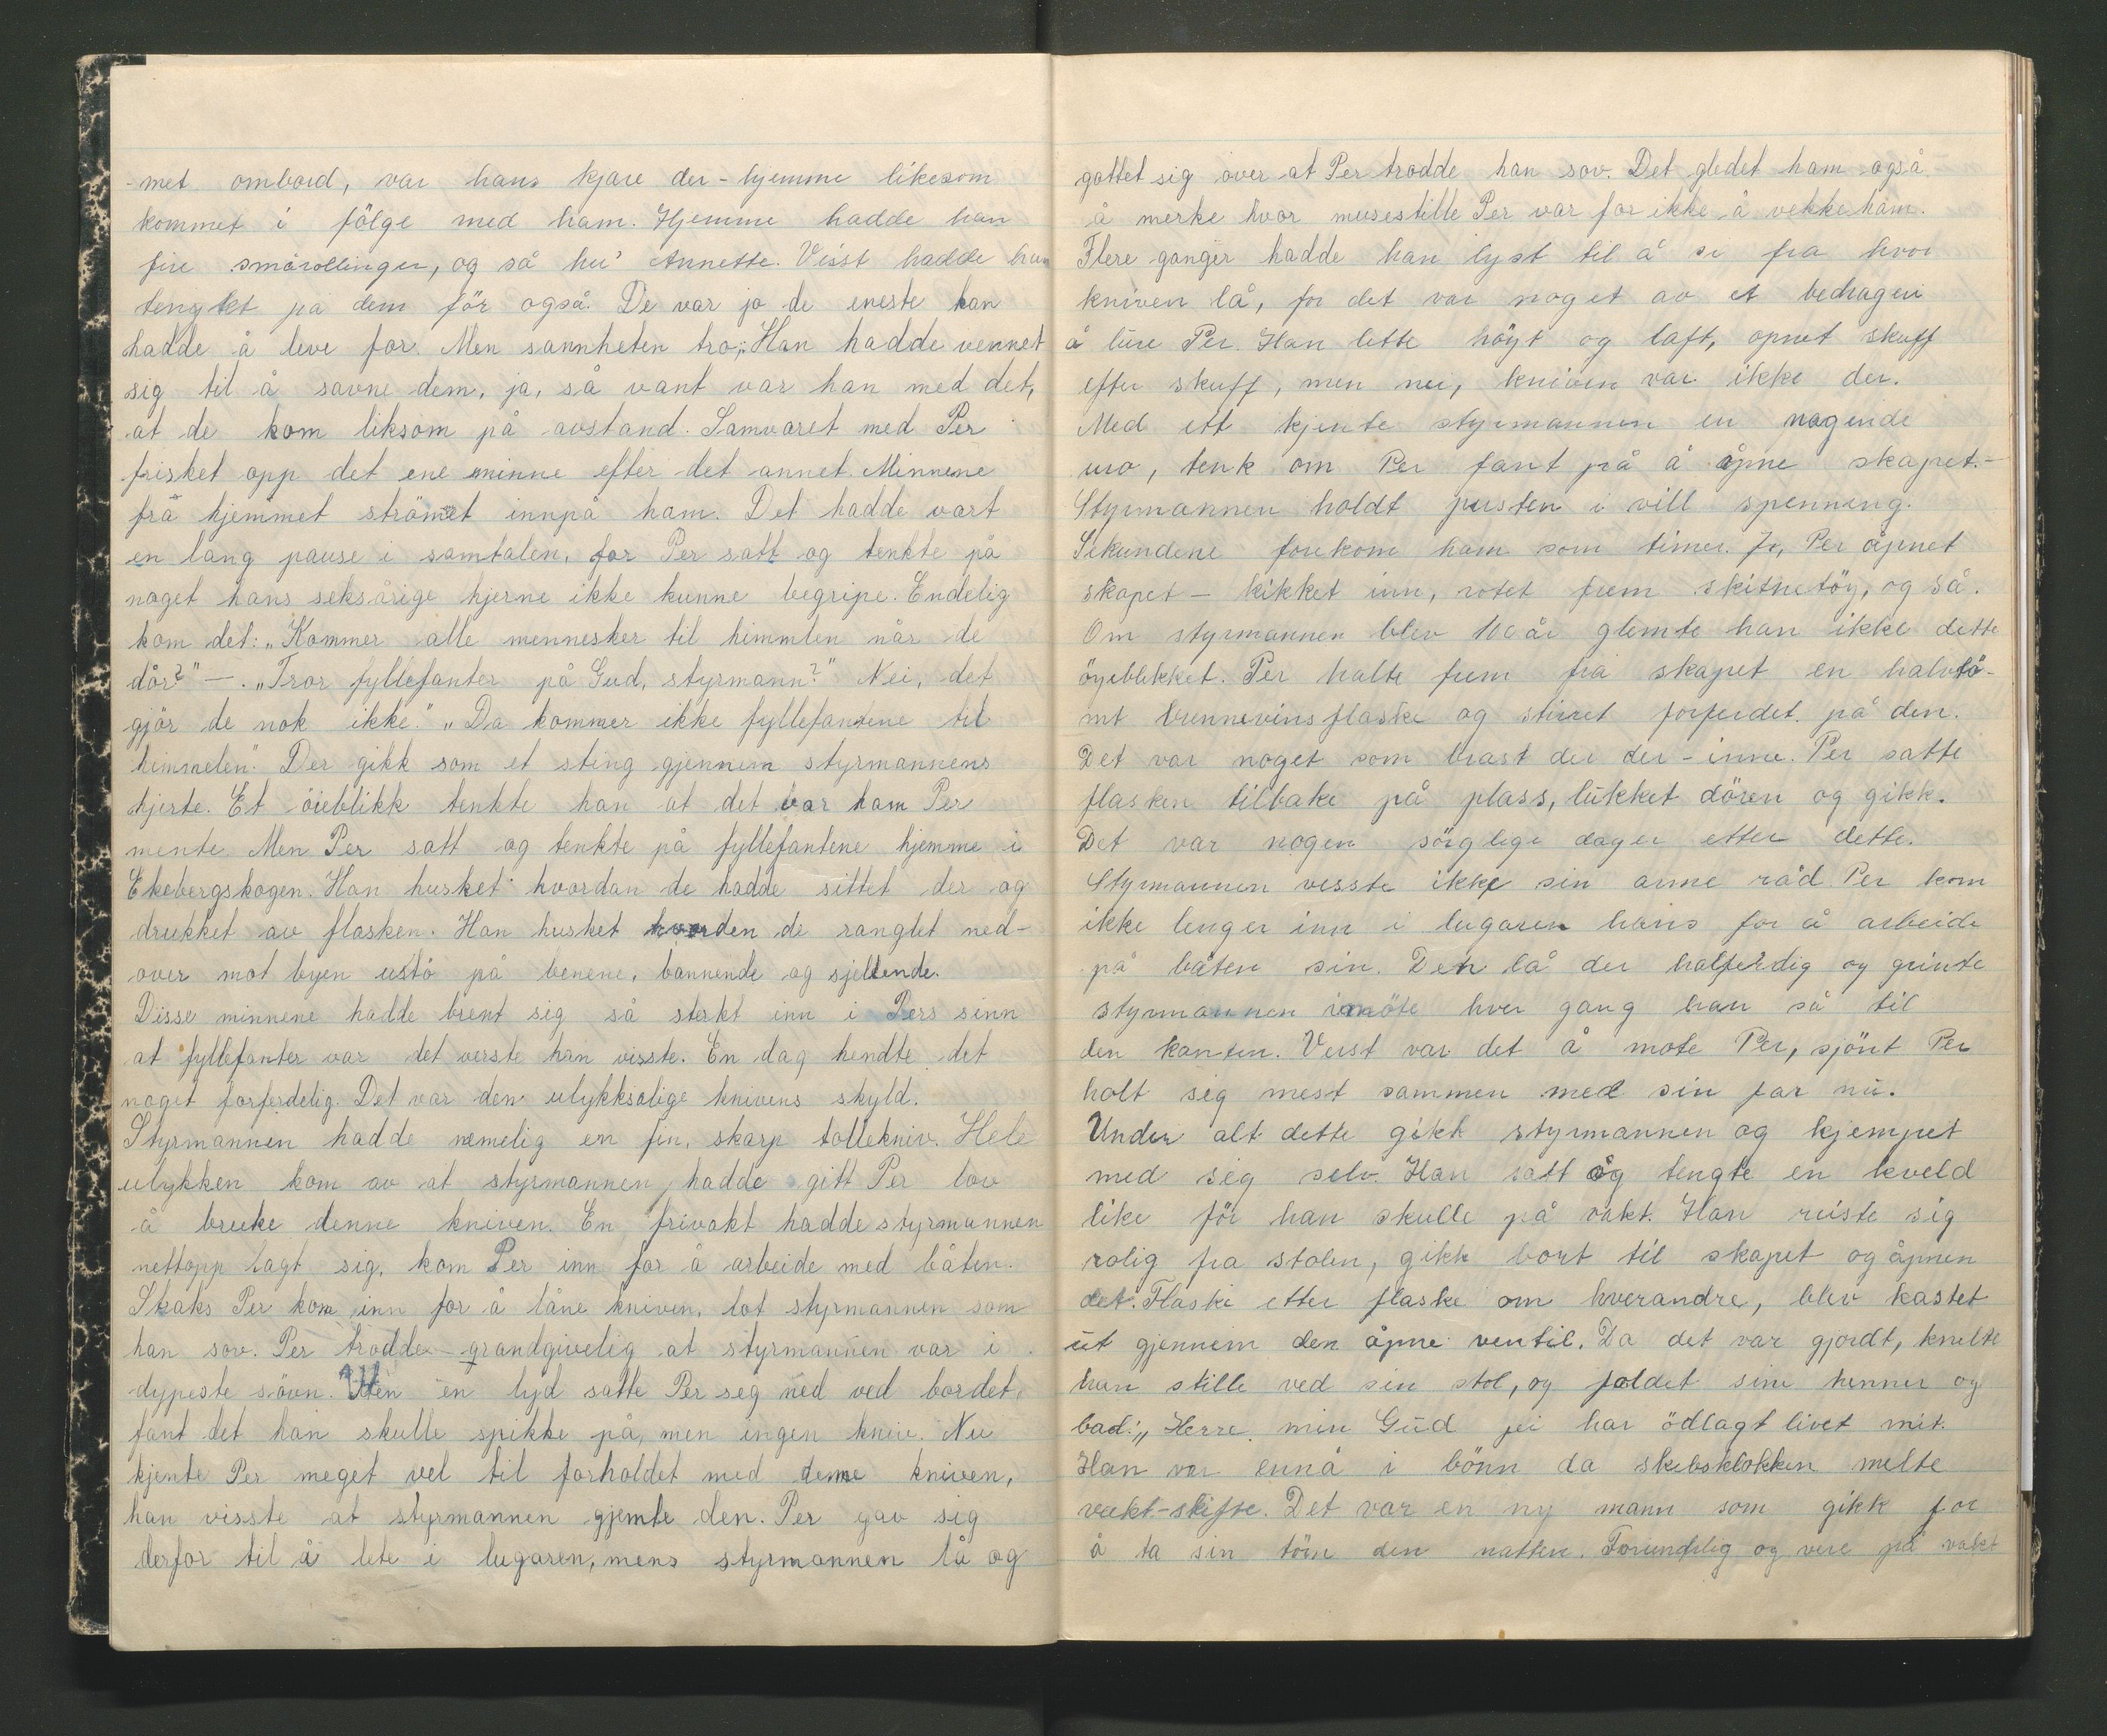 -met ombord, var hans kjære der-hjemme likesom
kommet i fölge med ham. Hjemme hadde han
fire smårollinger, og så hu' Annette. Visst hadde han
tengkt på dem för også. De var jo de eneste han
hadde å leve for. Men sannheten tro,: Han hadde vennet
sig til å savne dem, ja, så vant var han med det,
at de kom liksom på avstand. Samværet med Per
frisket opp det ene minne efter det annet. Minnene
frå hjemmet strömet innpå ham. Det hadde vært
en lang pause i samtalen, for Per satt og tenkte på
noget hans seksårige hjerne ikke kunne begripe. Endelig
kom det: „Kommer alle mennesker til himmlen når de
dår?" —. „Tror fyllefanter på Gud, styrmann?" Nei, det
gjör de nok ikke." „Da kommer ikke fyllefantene til
himmelen". Der gikk som et sting gjennem styrmannens
hjerte. Et öieblikk tenkte han at det var ham Per
mente. Men Per satt og tenkte på fyllefantene hjemme i
Ekebergskogen. Han husket hvordan de hadde sittet der og
drukket av flasken. Han husket hvorden de ranglet ned-
over mot byen ustö på benene, bannende og sjellende.
Disse minnene hadde brent sig så sterkt inn i Pers sinn
at fyllefanter var det verste han visste. En dag hendte det
noget forferdelig. Det var den ulykksalige knivens skyld.
Styrmannen hadde nemelig en fin, skarp tollekniv. Hele
ulykken kom av at styrmannen hadde gitt Per lov
å bruke denne kniven. En frivakt hadde styrmannen
nettopp lagt sig, kom Per inn for å arbeide med båten.
Skaks Per kom inn for å låne kniven, lot styrmannen som
han sov. Per trodde grandgivelig at styrmannen var i
dypeste sövn. Uten en lyd satte Per seg ned ved bordet,
fant det han skulle spikke på, men ingen kniv. Nu
kjente Per meget vel til forholdet med denne kniven,
han visste at styrmannen gjemte den. Per gav sig
derfor til å lete i lugaren, mens styrmannen lå og
gottet sig over at Per trodde han sov. Det gledet ham også
å merke hvor musestille Per var for ikke å vekke ham.
Flere ganger hadde han lyst til å si fra hvor
kniven lå, for det var noget av et bedrageri
å lure Per. Han lette höyt og laft, opnet skuff
efter skuff, men nei, kniven var ikke der.
Med ett kjente styrmannen en nagende
uro, tenk om Per fant på å åpne skapet.-
Styrmannen holdt pusten i vill spenning.
Sekundene forekom ham som timer. Jo, Per åpnet
skapet — kikket inn, rotet frem skitnetöy, og så.
Om styrmannen blev 100 år glemte han ikke dette
öyeblikket. Per halte frem fra skapet en halvtö-
mt brennevinsflaske og stirret forferdet på den.
Det var noget som brast der der-inne. Per satte
flasken tilbake på plass, lukket dören og gikk.
Det var nogen sörglige dager etter dette.
Styrmannen visste ikke sin arme råd. Per kom
ikke lenger inn i lugaren hans for å arbeide
på båten sin. Den lå der halferdig og grinte
styrmannen imöte hver gang han så til
den kanten. Verst var det å møte Per, sjönt Per
holt sig mest sammen med sin far nu.
Under alt dette gikk styrmannen og kjempet
med sig selv. Han satt og tengte en kveld
like för han skulle på vakt. Han reiste sig
rolig fra stolen, gikk bort til skapet og åpnen
det. Flaske etter flaske om hverandre, blev kastet
ut gjennem den åpne ventil. Da det var gjordt, knelte
han stille ved sin stol, og foldet sine henner og
bad: „Herre min Gud jei har ödlagt livet mit.
Han var ennå i bönn da skibsklokken melte
vakt-skifte. Det var en ny mann som gikk for
å ta sin törn den natten. Forunderlig og vere på vakt